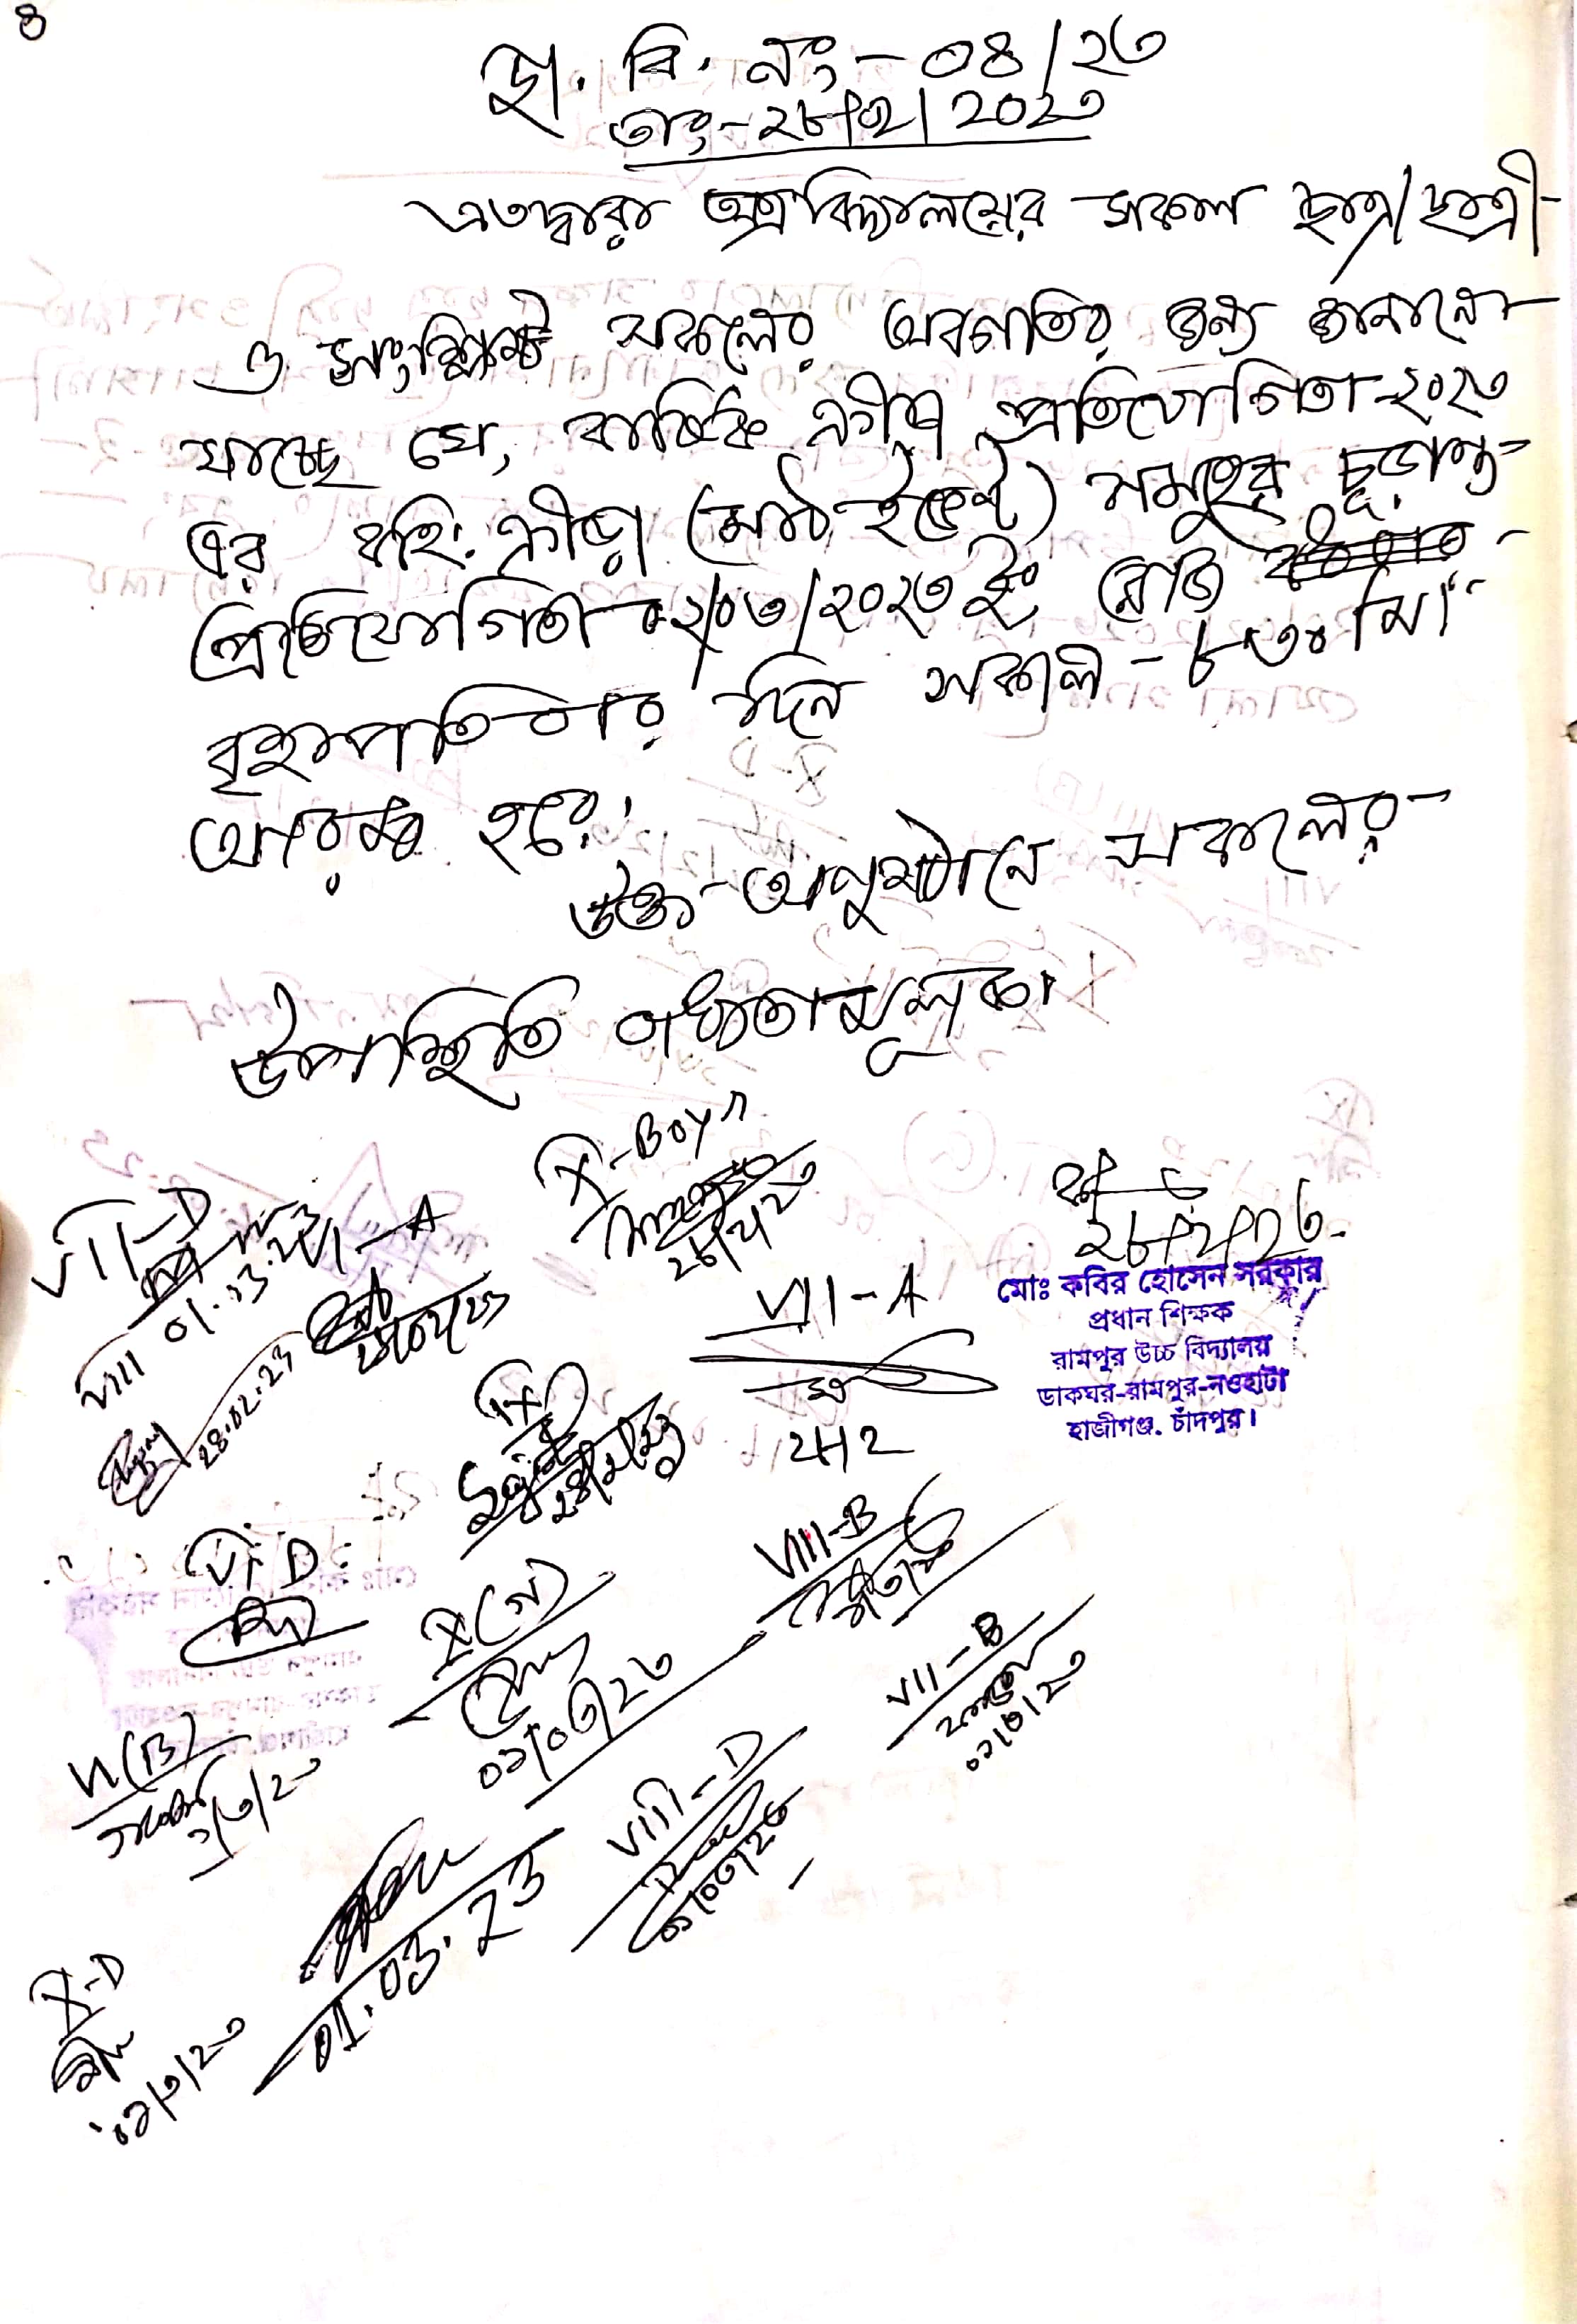 ৪
জ্ঞা. বি. নং - ০৪/২৩
তাং - ২৮/০২/২০২৩
এতদ্বারা অত্র বিদ্যালয়ের সকল ছাত্র/ছাত্রী
ও সংশ্লিষ্ট সকলের অবগতির জন্য জানানো
যাচ্ছে যে, বার্ষিক ক্রীড়া প্রতিযোগিতা-২০২৩
এর বহি: ক্রীড়া (মাঠ ইভেন্ট) সমূহের চূড়ান্ত
প্রতিযোগিতা ০২/০৩/২০২৩ ইং রোজ
বৃহস্পতিবার দিন সকাল - ৮-৩০ মি:
আরম্ভ হবে।
উক্ত অনুষ্ঠানে সকলের
উপস্থিতি বাধ্যতামূলক।
X-Boys
২৮/২/২৩
VII-D
01.03.23
VI-A
VIII
28.02.23
VII-A
২৮/২
২৮/২/২৩
মোঃ কবির হোসেন সরকার
প্রধান শিক্ষক
রামপুর উচ্চ বিদ্যালয়
ডাকঘর-রামপুর-নওহাটা
হাজীগঞ্জ. চাঁদপুর।
IX
VI-D
VIII-B
X(গ)
০১/০৩/২৩
VII-B
০১/৩/২৩
VI(B)
১/৩/২৩
VIII-D
০১/০৩/২৩
01.03.23
X-D
০১/৩/২৩